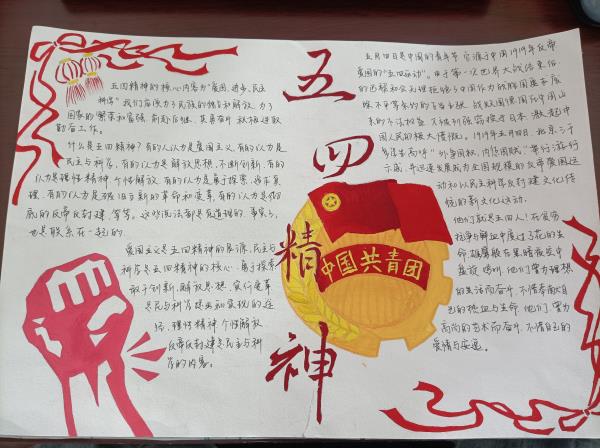 五四精神
中国共青团
五四精神的核心内容为"爱国、进步、民主
科学"我们应该为了民族的独立和解放、为了
国家的繁荣和富强,前赴后继、英勇奋斗,积极进取
勤奋工作。
什么是五四精神?有的人认为是爱国主义,有的认为是
民主与科学,有的认为是解放思想、不断创新,有的
认为是理性精神、个性解放,有的人为是勇于探索、追求真
理,有的认为是破旧立新的革命和变革,有的认为是彻
底的反帝反封建,等等。这些说法都是有道理的,事实上,
也是联系在一起的。
爱国主义是五四精神的源泉,民主与
科学是五四精神的核心,勇于探索
敢于创新、解放思想、实行变革
是民主与科学提出和实现的途
径,理性精神、个性解放
反帝反封建是民主与科
学的内容。
五月四日是中国的青年节,它源于中国1919年反帝
爱国的"五四运动"。由于第一次世界大战结束后,
巴黎和会无理拒绝了
1919年五月四日,北京
学生高呼"外争国权,内惩国贼"举行游行
示威,并迅速发展成为全国规模的反帝爱国运
动和以民主科学反封建文化传
统的新文化运动。
他们就是五四人!在贫穷
抗争与鲜血中度过了花的生
他们为理想
的生活而奋斗,不惜奉献自
己的热血与生命,他们,曾为
高尚的艺术而奋斗,不惜自己的
爱情与安逸。